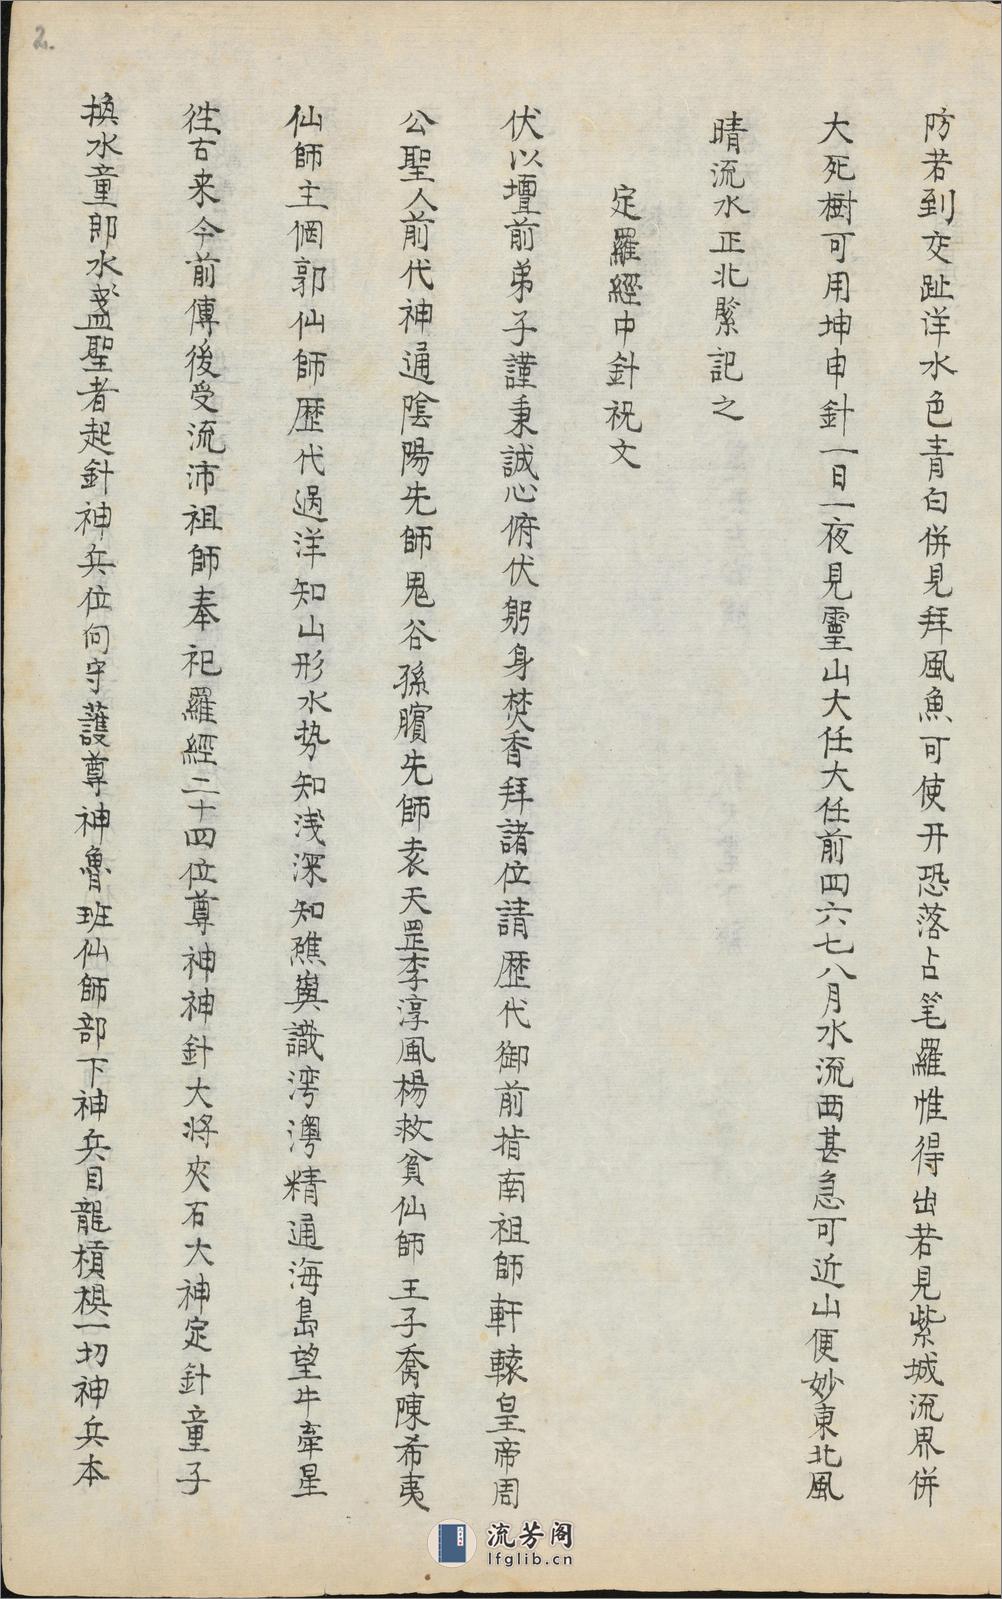 2.
防若到交趾洋水色青白併見拜風魚可使开恐落占笔羅惟得出若見紫城流界併
大死樹可用坤申針一日一夜見靈山大任大任前四六七八月水流西甚急可近山便妙東北風
晴流水正北緊記之
定羅經中針祝文
伏以壇前弟子謹秉誠心俯伏躬身焚香拜諸位請歷代御前指南祖師軒轅皇帝周
公聖人前代神通陰陽先師鬼谷孫臏先師袁天罡李淳風楊救貧仙師王子喬陳希夷
仙師主個郭仙師歷代過洋知山形水势知浅深知礁輿識湾澳精通海島望牛牽星
徃古来今前傳後受流沛祖師奉祀羅經二十四位尊神神針大将夾石大神定針童子
換水童郎水盞聖者起針神兵位向守護尊神魯班仙師部下神兵目龍槓椇一切神兵本
流芳阁
lfglib.cn